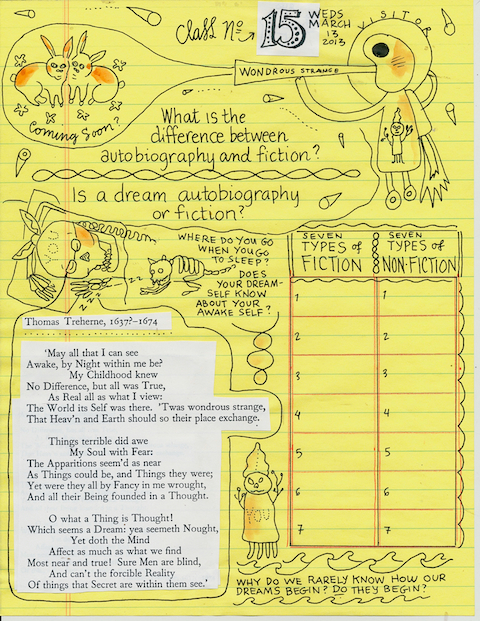 Class No 15 WEDS
MARCH
13
2013
VISITOR
WONDROUS STRANGE
Coming Soon?
What is the
difference between
autobiography and fiction?
Is a dream autobiography
or fiction?
WHERE DO YOU GO
WHEN YOU GO
TO SLEEP?
DOES
YOUR DREAM-
SELF KNOW
ABOUT YOUR
AWAKE SELF?
ZZZ
ZZ
SEVEN
TYPES of
FICTION
1
2
3
4
5
6
7
SEVEN
TYPES of
NON-FICTION
1
2
3
4
5
6
7
Thomas Treherne, 1637?–1674
'May all that I can see
Awake, by Night within me be?
My Childhood knew
No Difference, but all was True,
As Real all as what I view:
The World its Self was there. 'Twas wondrous strange,
That Heav'n and Earth should so their place exchange.
Things terrible did awe
My Soul with Fear:
The Apparitions seem'd as near
As Things could be, and Things they were;
Yet were they all by Fancy in me wrought,
And all their Being founded in a Thought.
O what a Thing is Thought!
Which seems a Dream: yea seemeth Nought,
Yet doth the Mind
Affect as much as what we find
Most near and true! Sure Men are blind,
And can't the forcible Reality
Of things that Secret are within them see.'
YOU
WHY DO WE RARELY KNOW HOW OUR
DREAMS BEGIN? DO THEY BEGIN?